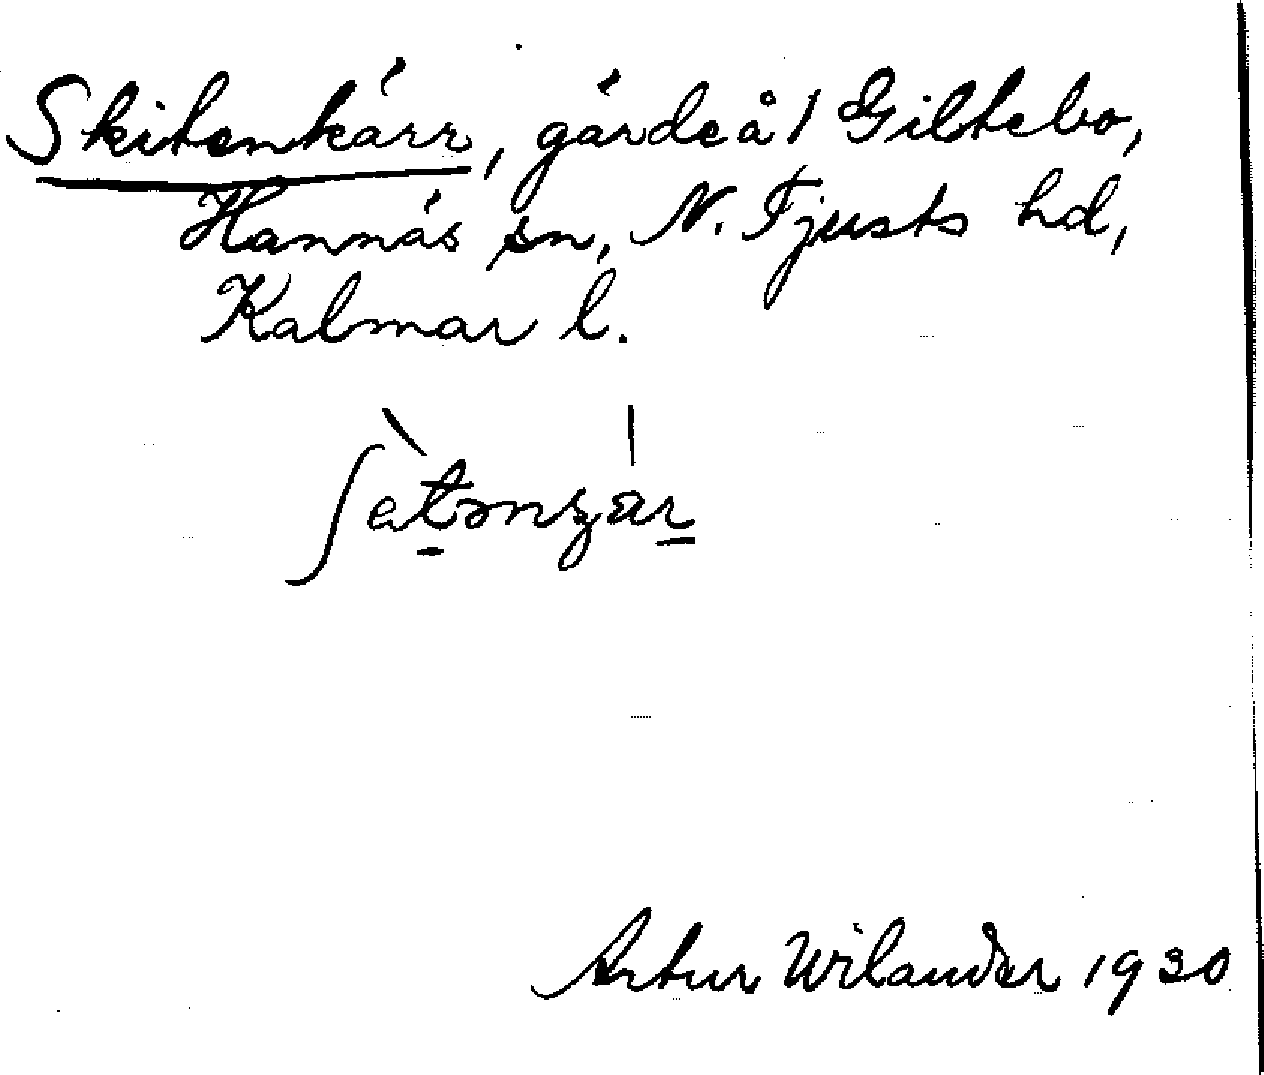 Skitenkärr, gärde å 1 Giltebo,
Hannäs sn, N. Tjusts hd,
Kalmar l.
Artur Wilander 1930